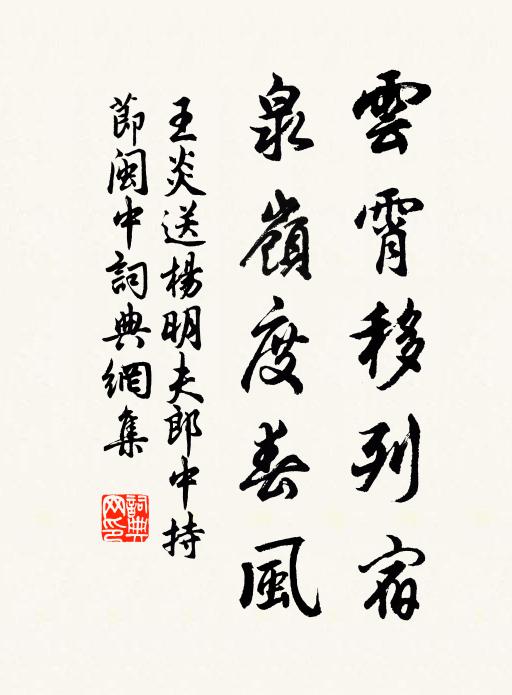 雲霄移列宿
泉嶺度春風
王炎送楊明夫郎中持
節閩中詞典網集
詞典
網印